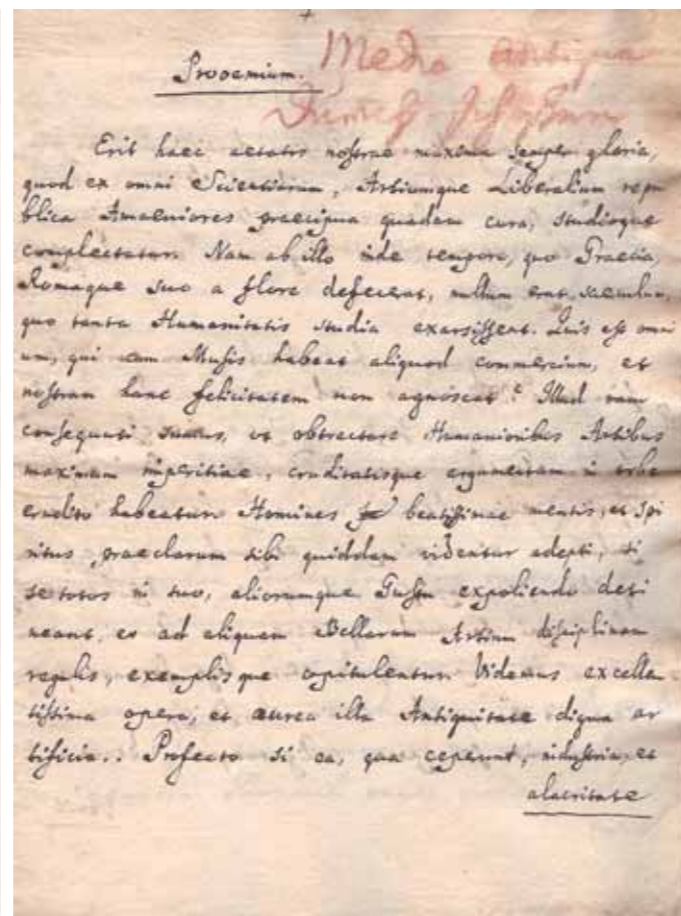 Prooemium.
Media antiqua
Erit haec aetatis nostrae maxima semper gloria,
quod ex omni Scientiarum, Artiumque Liberalium repu
blica Amaeniores praecipua quadam cura, studioque
complectatur. Nam ab illo inde tempore, quo Graetia,
Romaque suo a flore defecerat, nullum erat saeculum,
quo tanta Humanitatis studia exarsissent. Quis est omni
um, qui cum Musis habeat aliquod commercium, et
nostram hanc felicitatem non agnoscat? Illud nam
consequuti sumus, ut obtrectare Humanioribus Artibus
maximum imperitiae, cruditatisque argumentum in orbe
erudito habeatur. Homines beatissimae mentis, et Spi
ritus praeclarum sibi quiddam videntur adepti, si
se totos in suo, aliorumque Gustu expoliendo deti
neant, et ad aliquam Bellarum Artium disciplinam
regulis, exemplisque opitulentur. Videmus excellen
tissima opera, et aurea illa Antiquitate digna ar
tificia.. Profecto si ea, qua ceperunt, industria, et
alacritate